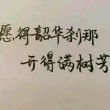 愿得韶华刹那
开得满树芳